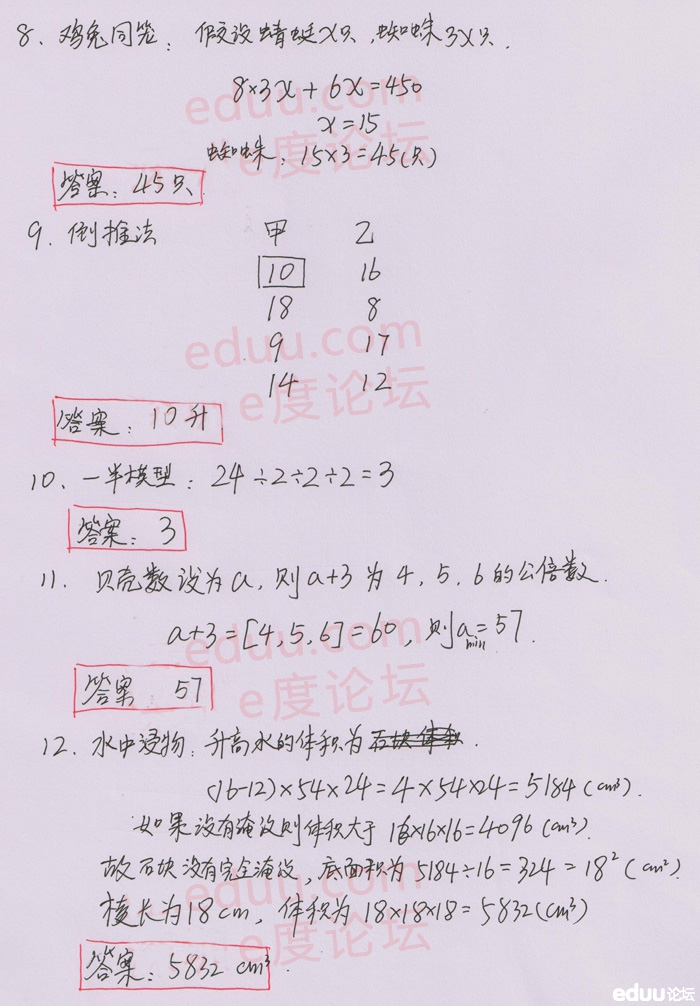 8、鸡兔同笼：假设蜻蜓x只，蜘蛛3x只.
8×3x+6x=450
x=15
蜘蛛：15×3=45(只)
答案：45只
9、倒推法 甲 乙
10 16
18 8
9 17
14 12
答案：10升
10、一半模型：24÷2÷2÷2=3
答案：3
11、贝壳数设为a，则a+3为4，5，6的公倍数.
a+3=[4,5,6]=60，则a min=57.
答案 57
12、水中浸物：升高水的体积为石块体积.
(16-12)×54×24=4×54×24=5184(cm³).
如果没有淹没则体积大于16×16×16=4096(cm³).
故石块没有完全淹没，底面积为5184÷16=324=18²(cm²).
棱长为18cm，体积为18×18×18=5832(cm³)
答案：5832 cm³.
eduu.com
e度论坛
eduu.com
e度论坛
eduu.com
e度论坛
eduu.com
e度论坛
eduu论坛